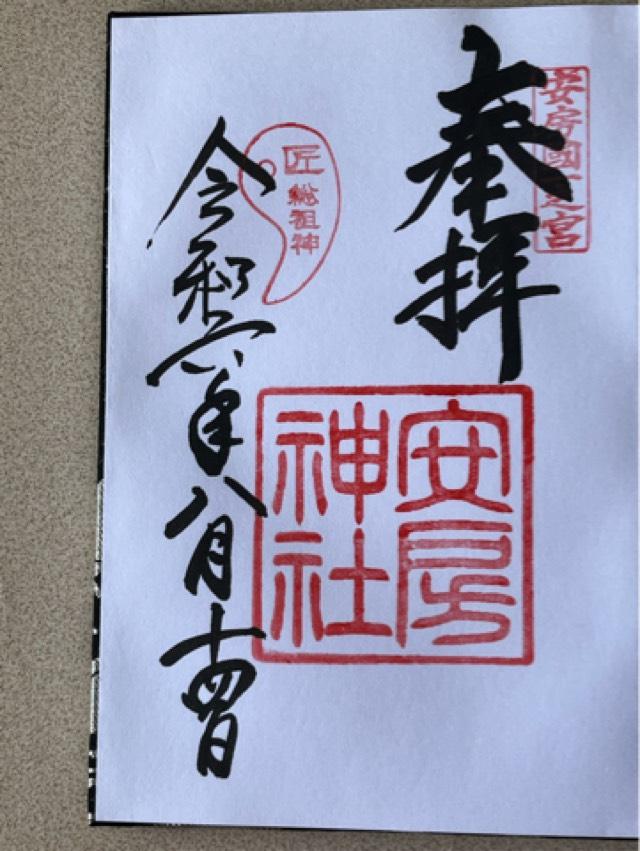 安房國一之宮
奉拝
安房
神社
匠
総祖神
令和六年八月十四日